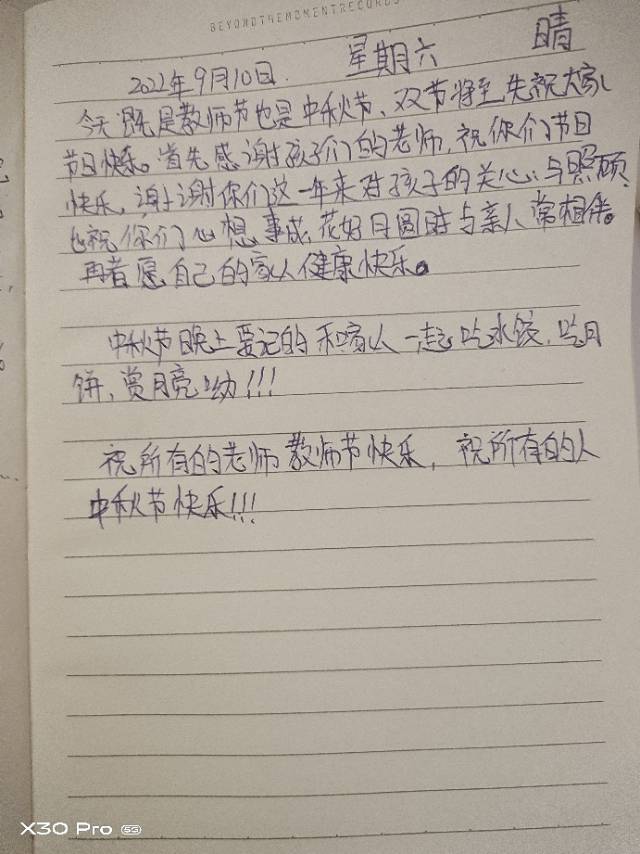 BEYONDTHEMOMENTRECORDS
2022年9月10日. 星期六 晴
今天既是教师节也是中秋节、双节将至先祝大家
节日快乐。首先感谢孩子们的老师,祝你们节日
快乐,谢谢你们这一年来对孩子的关心与照顾,
也祝你们心想事成,花好月圆时与亲人常相伴。
再者愿自己的家人健康快乐。
中秋节晚上要记的和家人一起吃水饺,吃月
饼、赏月亮呦!!!
祝所有的老师教师节快乐,祝所有的人
中秋节快乐!!!
X30 Pro 5G